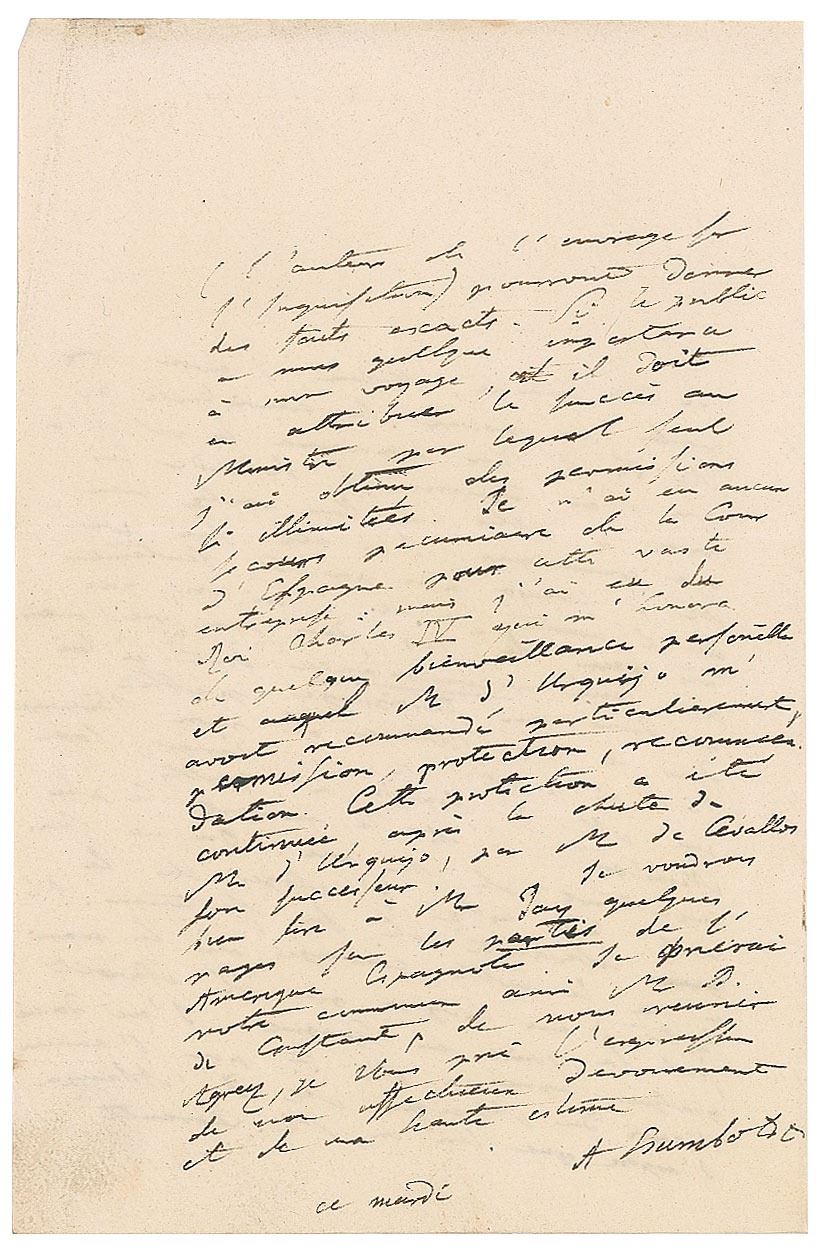 (l'auteur de l'ouvrage sur
l'Inquisition) pourront donner
des faits exacts. Si le public
a mis quelque importance
à mon voyage, il doit
en attribuer le succès au
Ministre par lequel seul
j'ai obtenu des permissions
si illimitées. Je n'ai eu aucun
secours pecuniaire de la Cour
d'Espagne pour cette vaste
entreprise: mais j'ai eu du
Roi Charles IV qui m'honora
de quelque bienveillance personelle
et auquel M d'Urquijo m'
avoit recommandé particulierement,
permission, protection, recommen-
dation. Cette protection a été
continuée après la chute de
M d'Urquijo, par M de Cevallos
son successeur. Je voudrois
bien lire à M Jay quelques
pages sur les partis de l'
Amerique Espagnole. Je prierai
notre commun ami M B.
de Constant, de nous reunir
Agreez, je Vous prie l'expression
de mon affectueux devouement
et de ma haute estime
A Humboldt
ce mardi